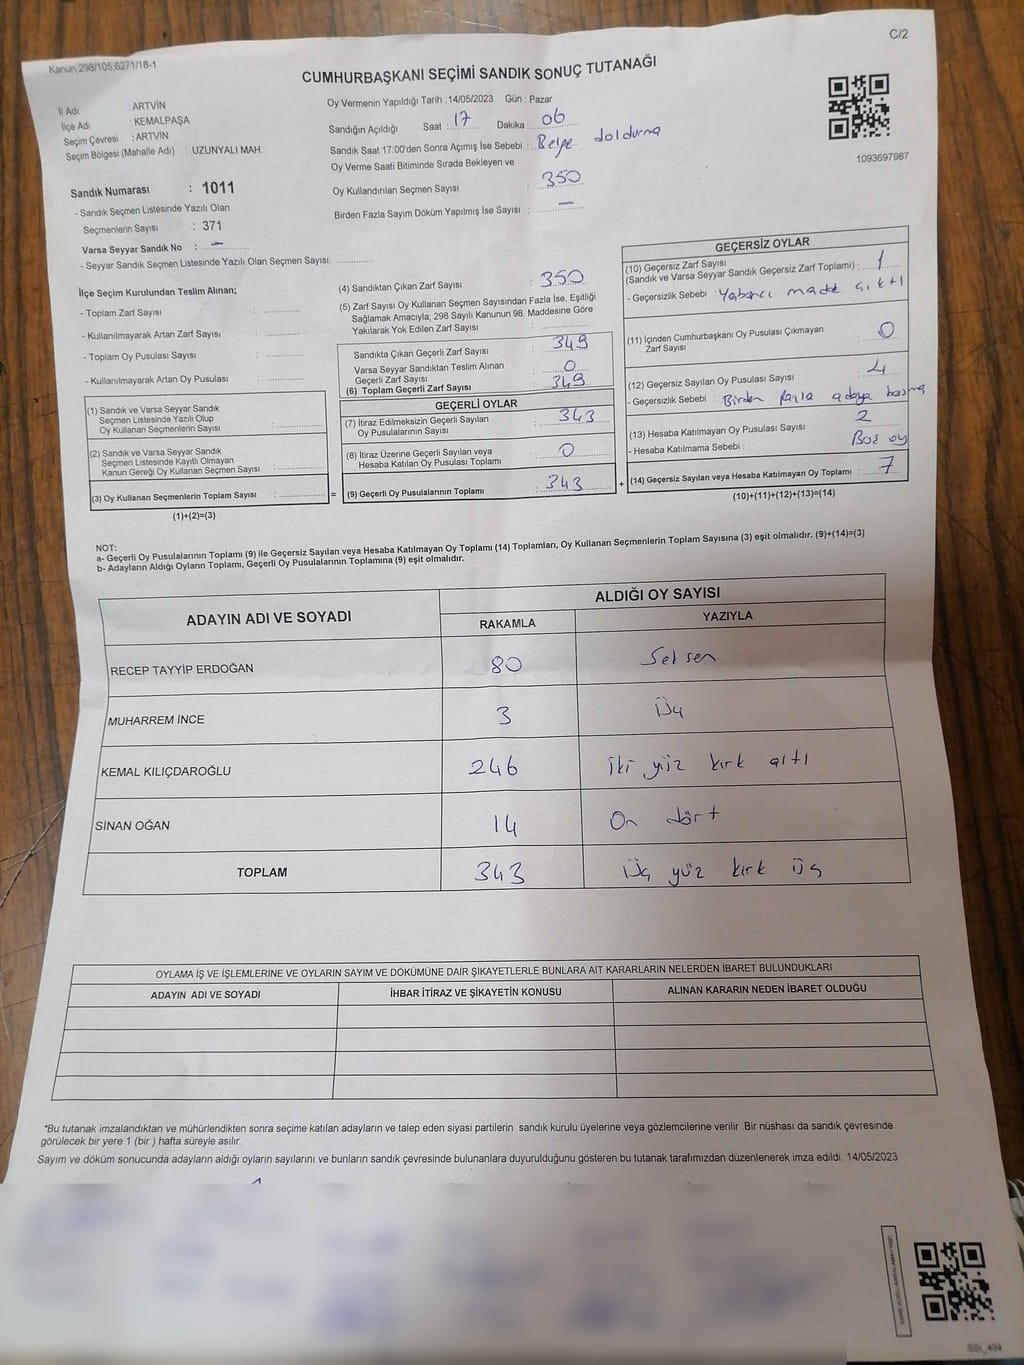 C/2
Kanun:298/105;6271/18-1
CUMHURBAŞKANI SEÇİMİ SANDIK SONUÇ TUTANAĞI
İl Adı : ARTVİN
İlçe Adı : KEMALPAŞA
Seçim Çevresi : ARTVİN
Seçim Bölgesi (Mahalle Adı) : UZUNYALI MAH.
Sandık Numarası : 1011
- Sandık Seçmen Listesinde Yazılı Olan
Seçmenlerin Sayısı : 371
Varsa Seyyar Sandık No : –
- Seyyar Sandık Seçmen Listesinde Yazılı Olan Seçmen Sayısı: ..............
Oy Vermenin Yapıldığı Tarih : 14/05/2023 Gün : Pazar
Sandığın Açıldığı Saat : 17 Dakika : 06
Sandık Saat 17:00'den Sonra Açımış İse Sebebi : Belge doldurma
Oy Verme Saati Bitiminde Sırada Bekleyen ve
Oy Kullandırılan Seçmen Sayısı : 350
Birden Fazla Sayım Döküm Yapılmış İse Sayısı : –
1093697987
İlçe Seçim Kurulundan Teslim Alınan;
- Toplam Zarf Sayısı : ..............
- Kullanılmayarak Artan Zarf Sayısı : ..............
- Toplam Oy Pusulası Sayısı : ..............
- Kullanılmayarak Artan Oy Pusulası : ..............
(1) Sandık ve Varsa Seyyar Sandık
Seçmen Listesinde Yazılı Olup
Oy Kullanan Seçmenlerin Sayısı : ..............
(2) Sandık ve Varsa Seyyar Sandık
Seçmen Listesinde Kayıtlı Olmayan
Kanun Gereği Oy Kullanan Seçmen Sayısı : ..............
(3) Oy Kullanan Seçmenlerin Toplam Sayısı : .............. =
(1)+(2)=(3)
(4) Sandıktan Çıkan Zarf Sayısı : 350
(5) Zarf Sayısı Oy Kullanan Seçmen Sayısından Fazla İse, Eşitliği
Sağlamak Amacıyla; 298 Sayılı Kanunun 98. Maddesine Göre
Yakılarak Yok Edilen Zarf Sayısı : ..............
Sandıkta Çıkan Geçerli Zarf Sayısı : 349
Varsa Seyyar Sandıktan Teslim Alınan
Geçerli Zarf Sayısı : 0
(6) Toplam Geçerli Zarf Sayısı : 349
GEÇERLİ OYLAR
(7) İtiraz Edilmeksizin Geçerli Sayılan
Oy Pusulalarının Sayısı : 343
(8) İtiraz Üzerine Geçerli Sayılan veya
Hesaba Katılan Oy Pusulası Toplamı : 0
(9) Geçerli Oy Pusulalarının Toplamı : 343 +
GEÇERSİZ OYLAR
(10) Geçersiz Zarf Sayısı
(Sandık ve Varsa Seyyar Sandık Geçersiz Zarf Toplamı) : 1
- Geçersizlik Sebebi : Yabancı madde çıktı
(11) İçinden Cumhurbaşkanı Oy Pusulası Çıkmayan
Zarf Sayısı : 0
(12) Geçersiz Sayılan Oy Pusulası Sayısı : 4
- Geçersizlik Sebebi : Birden fazla adaya basma
(13) Hesaba Katılmayan Oy Pusulası Sayısı : 2
- Hesaba Katılmama Sebebi : Boş oy
(14) Geçersiz Sayılan veya Hesaba Katılmayan Oy Toplamı : 7
(10)+(11)+(12)+(13)=(14)
NOT:
a- Geçerli Oy Pusulalarının Toplamı (9) ile Geçersiz Sayılan veya Hesaba Katılmayan Oy Toplamı (14) Toplamları, Oy Kullanan Seçmenlerin Toplam Sayısına (3) eşit olmalıdır. (9)+(14)=(3)
b- Adayların Aldığı Oyların Toplamı, Geçerli Oy Pusulalarının Toplamına (9) eşit olmalıdır.
ADAYIN ADI VE SOYADI ALDIĞI OY SAYISI
RAKAMLA YAZIYLA
RECEP TAYYİP ERDOĞAN 80 Seksen
MUHARREM İNCE 3 Üç
KEMAL KILIÇDAROĞLU 246 İki yüz kırk altı
SİNAN OĞAN 14 On dört
TOPLAM 343 Üç yüz kırk üç
OYLAMA İŞ VE İŞLEMLERİNE VE OYLARIN SAYIM VE DÖKÜMÜNE DAİR ŞİKAYETLERLE BUNLARA AİT KARARLARIN NELERDEN İBARET BULUNDUKLARI
ADAYIN ADI VE SOYADI İHBAR İTİRAZ VE ŞİKAYETİN KONUSU ALINAN KARARIN NEDEN İBARET OLDUĞU
*Bu tutanak imzalandıktan ve mühürlendikten sonra seçime katılan adayların ve talep eden siyasi partilerin sandık kurulu üyelerine veya gözlemcilerine verilir. Bir nüshası da sandık çevresinde
görülecek bir yere 1 (bir ) hafta süreyle asılır.
Sayım ve döküm sonucunda adayların aldığı oyların sayılarını ve bunların sandık çevresinde bulunanlara duyurulduğunu gösteren bu tutanak tarafımızdan düzenlenerek imza edildi. 14/05/2023